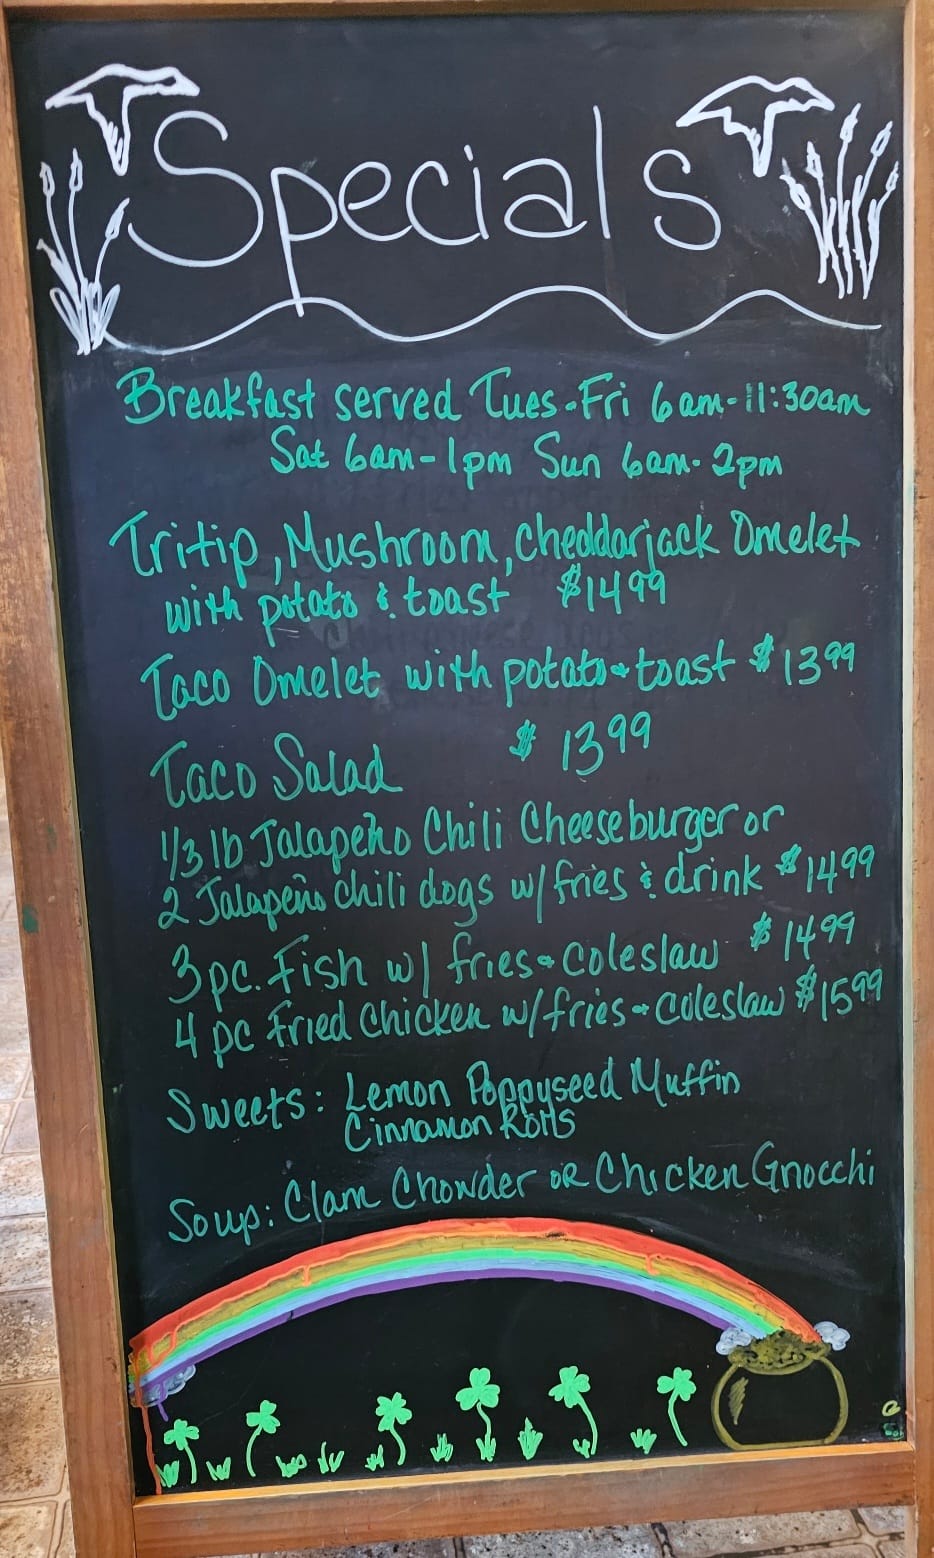 Specials
Breakfast served Tues-Fri 6am-11:30am
Sat 6am-1pm Sun 6am-2pm
Tritip, Mushroom, Cheddarjack Omelet
with potato & toast $14.99
Taco Omelet with potato & toast $13.99
Taco Salad $13.99
1/3 lb Jalapeño Chili Cheeseburger or
2 Jalapeño Chili dogs w/ fries & drink $14.99
3 pc. Fish w/ fries & coleslaw $14.99
4 pc Fried Chicken w/ fries & coleslaw $15.99
Sweets: Lemon Poppyseed Muffin
Cinnamon Rolls
Soup: Clam Chowder OR Chicken Gnocchi